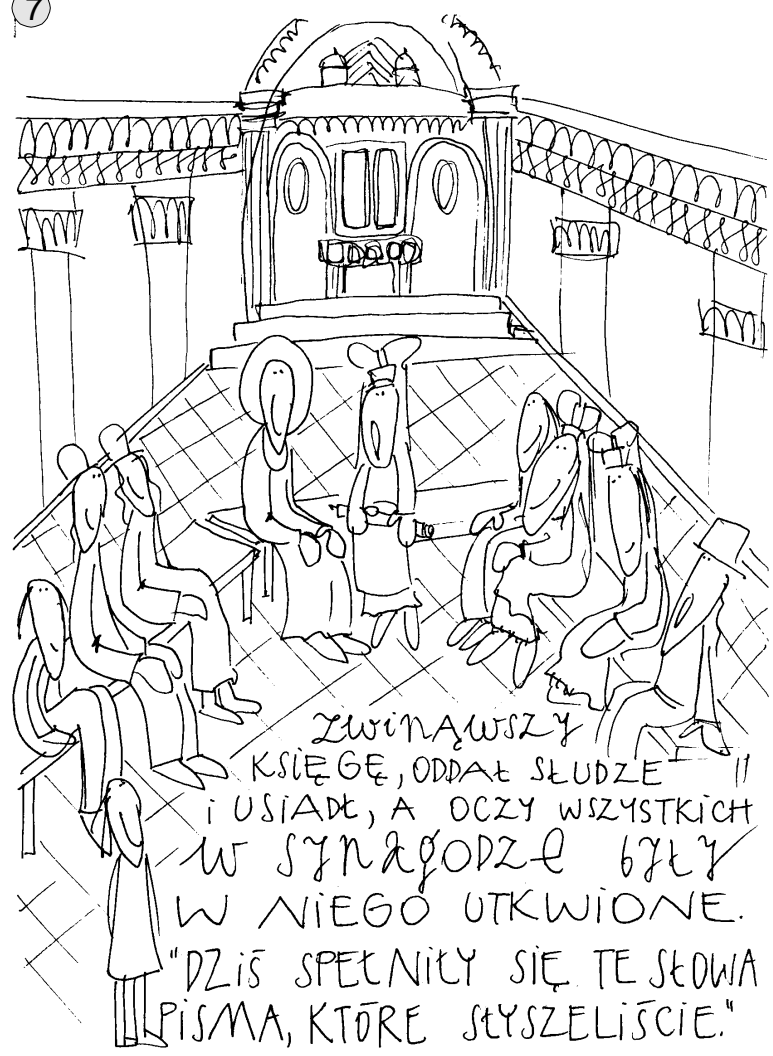 7
ZWINĄWSZY
KSIĘGĘ, ODDAŁ SŁUDZE
i USIADŁ, A OCZY WSZYSTKICH
W SYNAGODZE BYŁY
W NIEGO UTKWIONE.
"DZIŚ SPEŁNIŁY SIĘ TE SŁOWA
PISMA, KTÓRE SŁYSZELIŚCIE."